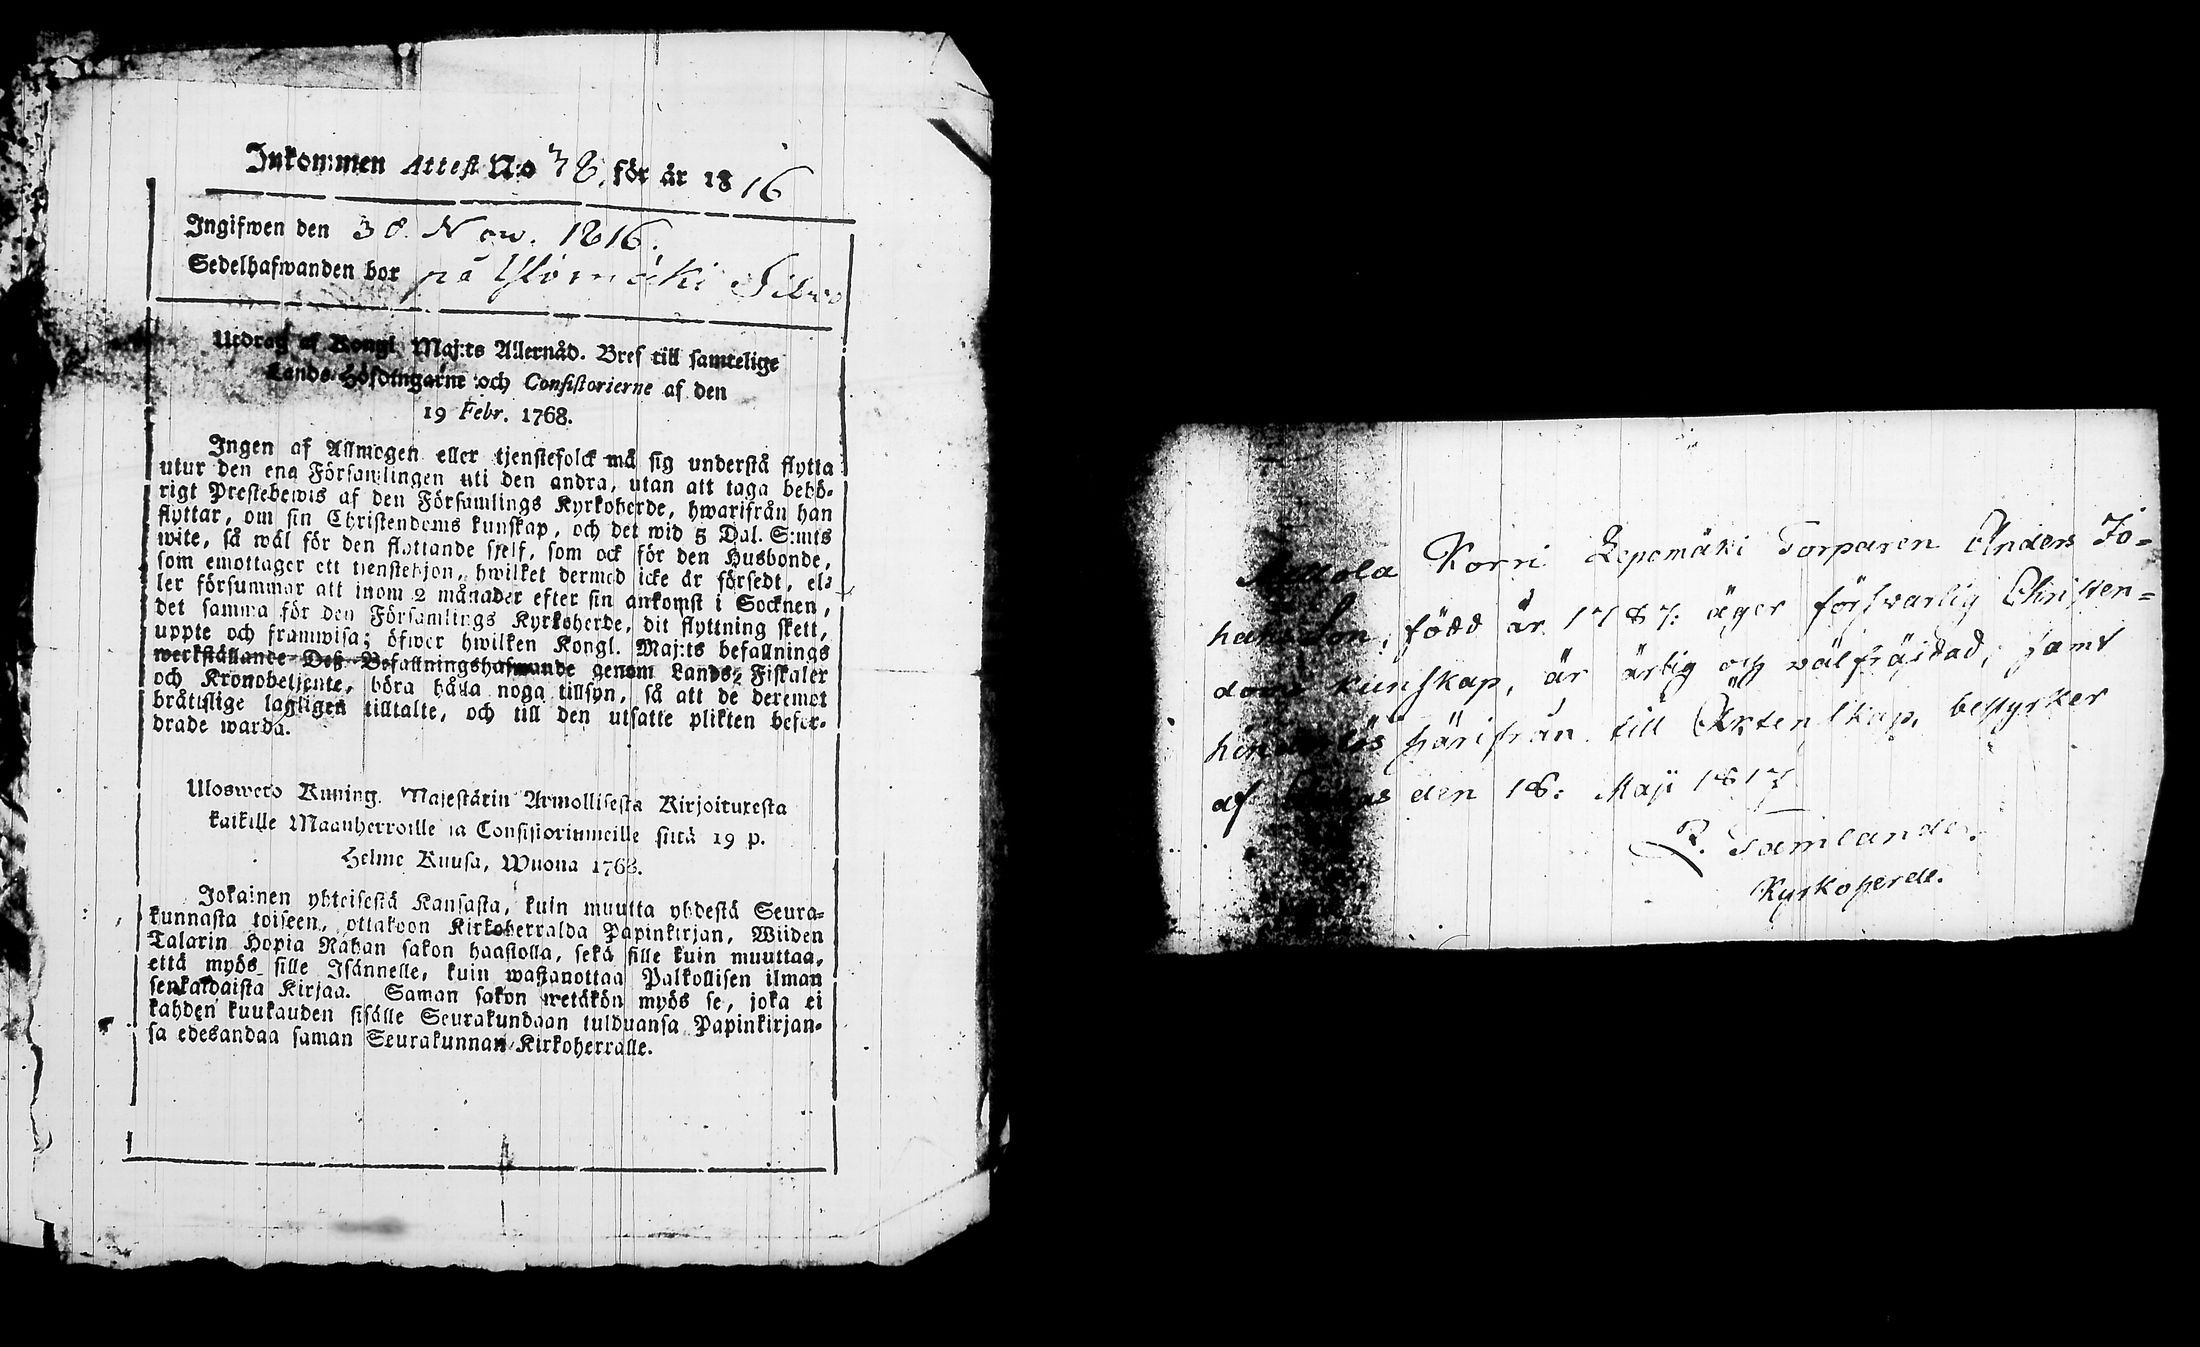 Inkommen Attest N:o 38, för år 1816
Ingifwen den 30 Nov. 1816.
Sedelhafwanden bor på Ylömäki
Utdrag af Kongl. Maj:ts Allernåd. Bref till samtelige
Lands-Höfdingarne och Consistorierne af den
19 Febr. 1768.
Ingen af Allmogen eller tjenstefolck må sig understå flytta
utur den ena Församlingen uti den andra, utan att taga behö-
rigt Prestebewis af den Församlings Kyrkoherde, hwarifrån han
flyttar, om sin Christendoms kunskap, och det wid 5 Dal. S:mts
wite, så wäl för den flyttande sjelf, som ock för den Husbonde,
som emottager ett tienstehjon, hwilket dermed icke är försedt, el-
ler försummar att inom 2 månader efter sin ankomst i Socknen,
det samma för den Församlings Kyrkoherde, dit flyttning skett,
uppte och framwisa; öfwer hwilken Kongl. Maj:ts befallnings
werkställande Deß Befallningshafwande genom Lands-Fiskaler
och Kronobetjente, böra hålla noga tillsyn, så att de deremot
bråttslige lagligen tilltalte, och till den utsatte plikten befor-
drade warda.
Uloswero Kuning. Majestätin Armollisesta Kirjoituresta
kaikille Maanherroille ja Consistoriumeille siitä 19 p.
Helme Kuusa, Wuona 1768.
Jokainen yhteisestä Kansasta, kuin muutta yhdestä Seura-
kunnasta toiseen, ottakoon Kirkoherralda Papinkirjan, Wiiden
Talarin Hopia Rahan sakon haastolla, sekä sille kuin muuttaa,
että myös sille Isännelle, kuin wastanottaa Palkollisen ilman
senkaldaista Kirjaa. Saman sakon wetäkön myös se, joka ei
kahden kuukauden sisälle Seurakundaan tulduansa Papinkirjan-
sa edesandaa saman Seurakunnan Kirkoherralle.
Korri Lepomäki Torparen Anders Jo-
hans Son, född år 1787: äger försvarlig Christen-
doms kunskap, är ärlig och wälfräjdad, samt
hinderlös härifrån till Äktenskap, bestyrker
af den 18: Maji 1817
P. Tamlander.
Kyrkoherde.